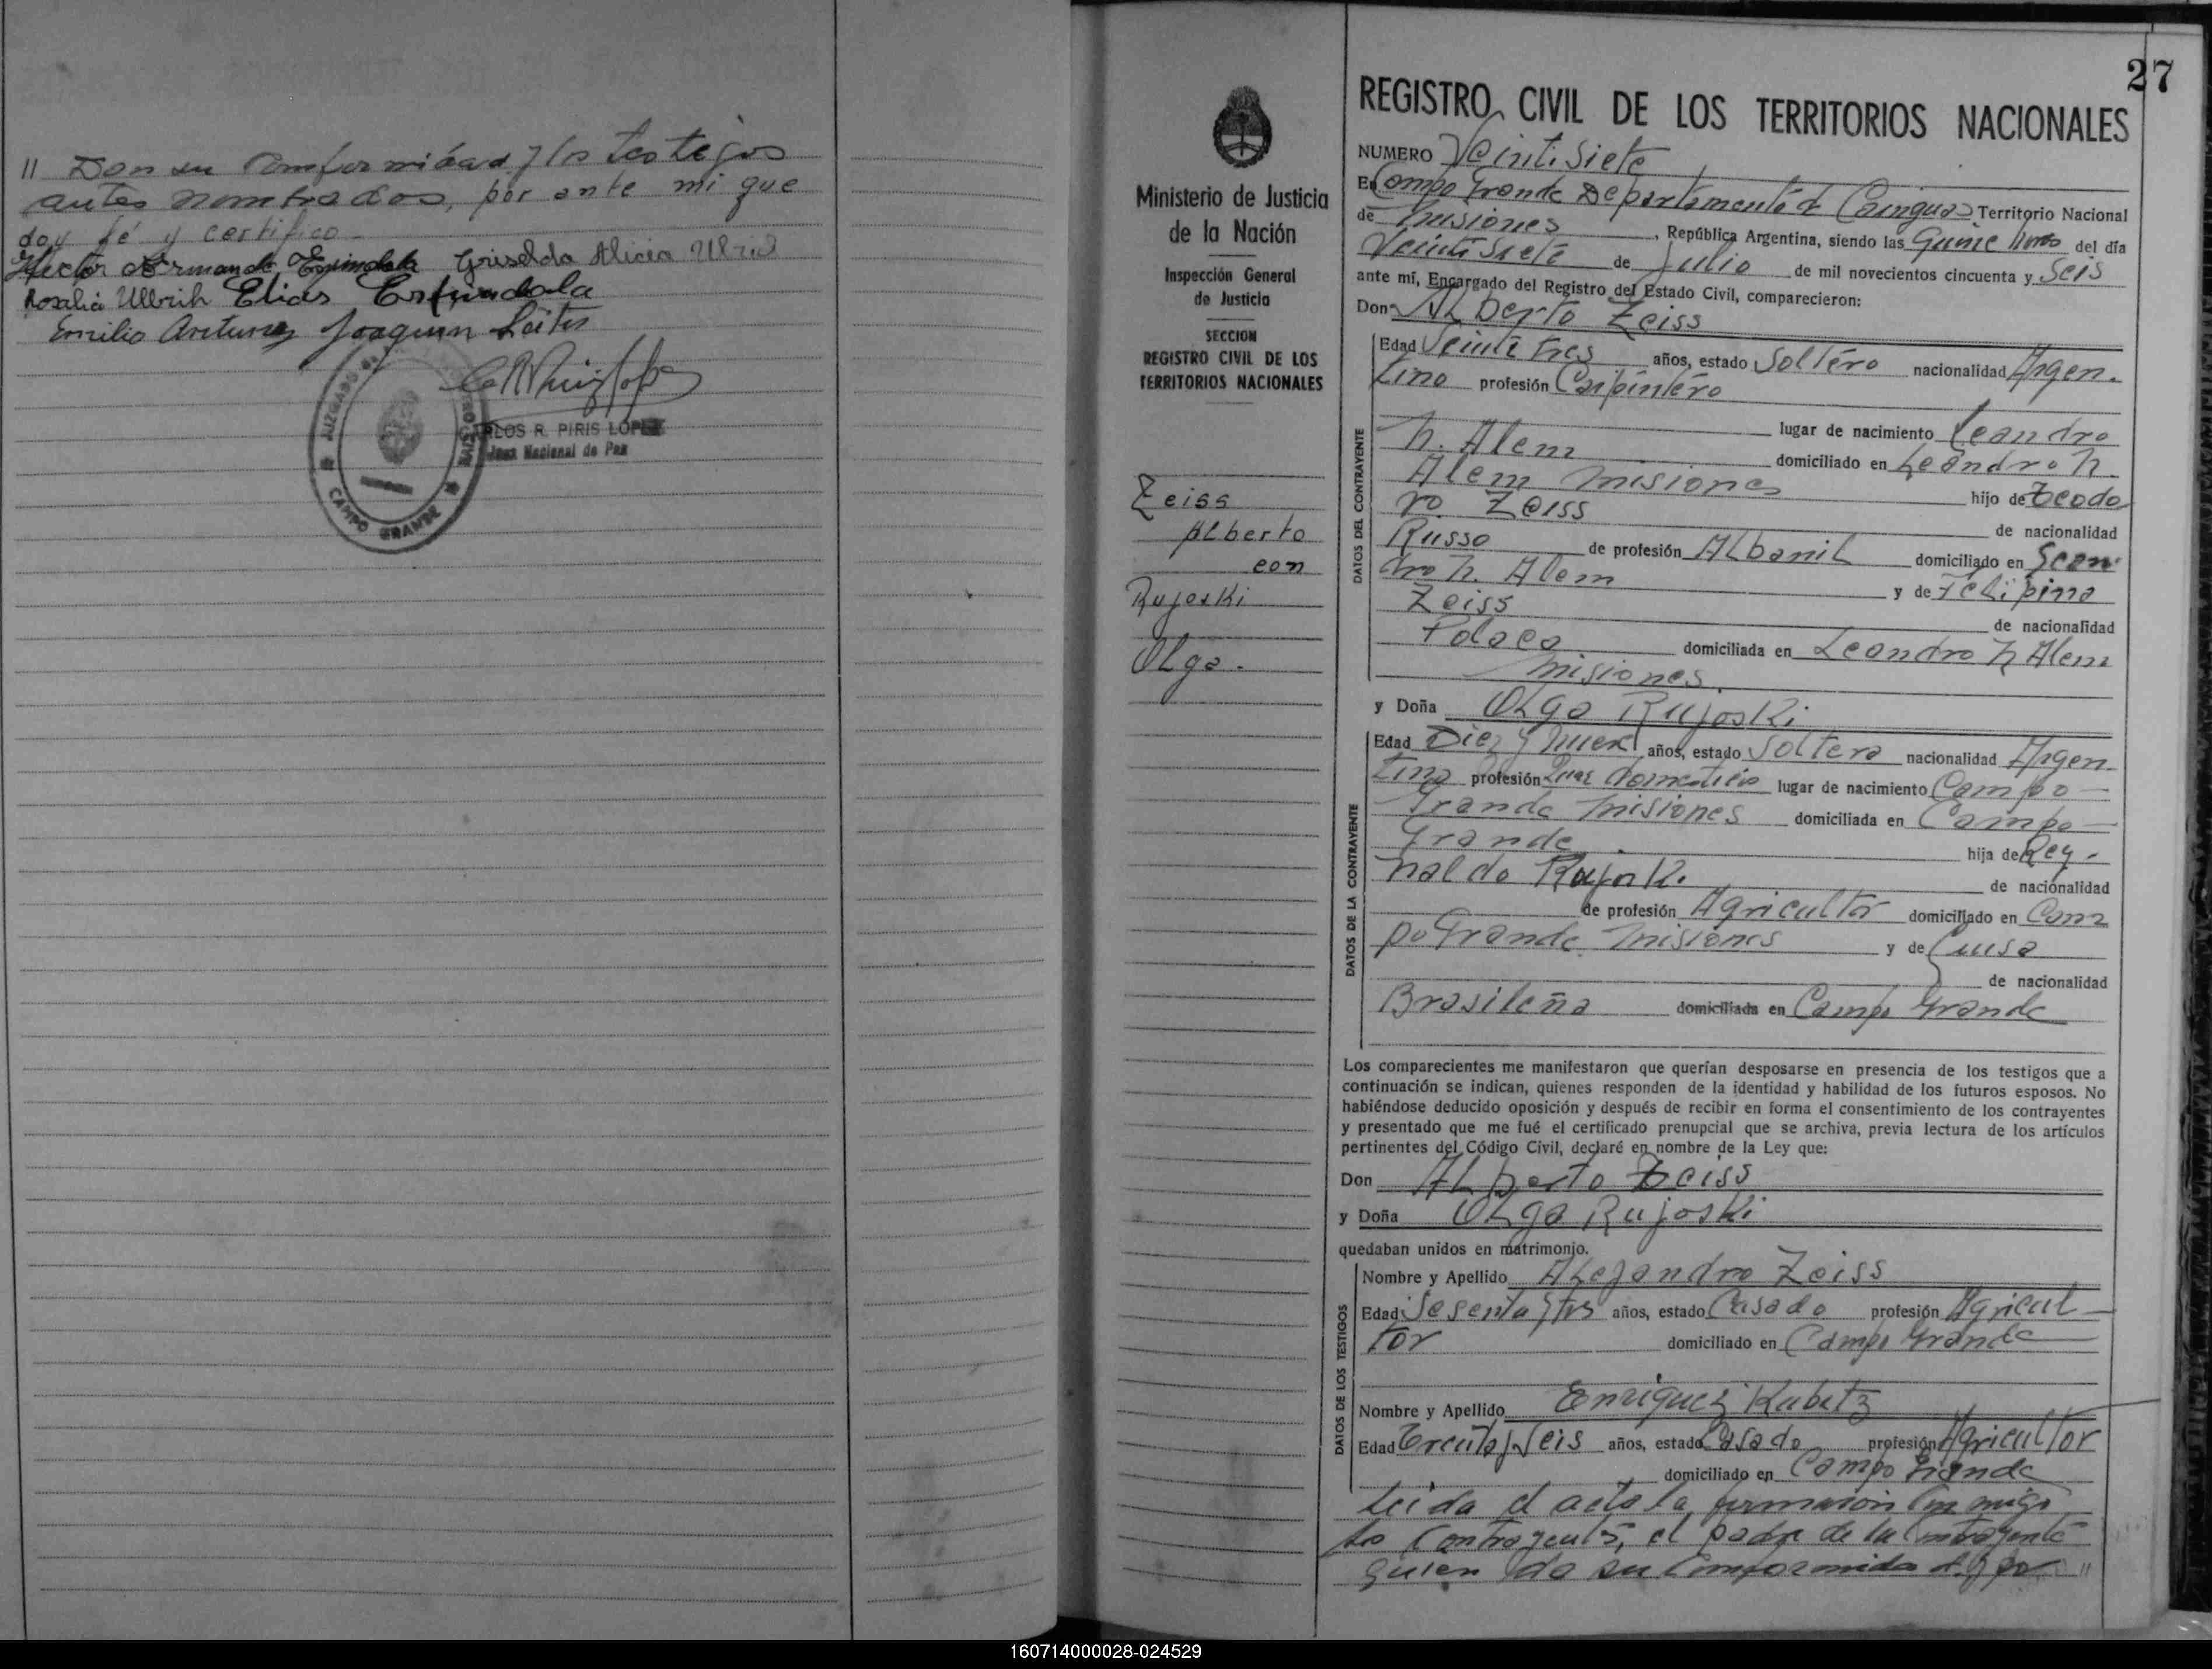 // Dan su conformidad y los testigos
antes nombrados, por ante mi que
doy fé y certifico
Hector Armando Espindola Griselda Alicia Ulrich
Rosalia Ullrich Elias Espindola
Emilio Antunez Joaquin
JUZGADO DE
CAMPO GRANDE
CARLOS R. PIRIS LOPEZ
Juez Nacional de Paz
27
Ministerio de Justicia
de la Nación
Inspección General
de Justicia
SECCION
REGISTRO CIVIL DE LOS
TERRITORIOS NACIONALES
Zeiss
Alberto
con
Rujoski
Olga.
REGISTRO CIVIL DE LOS TERRITORIOS NACIONALES
NUMERO Veintisiete
En Campo Grande Departamento de Cainguas Territorio Nacional
de Misiones, República Argentina, siendo las Quince horas del día
Veintisiete de Julio de mil novecientos cincuenta y Seis
ante mí, Encargado del Registro del Estado Civil, comparecieron:
Don Alberto Zeiss
DATOS DEL CONTRAYENTE
Edad Veinte tres años, estado Soltero nacionalidad Argen-
tino profesión Carpintero
lugar de nacimiento Leandro
N. Alem domiciliado en Leandro N.
Alem Misiones hijo de Teodo
ro Zeiss de nacionalidad
Russo de profesión Albanil domiciliado en Lean
dro N. Alem y de Felipina
Zeiss de nacionalidad
Polaca domiciliada en Leandro N Alem
Misiones.
y Doña Olga Rujoski
DATOS DE LA CONTRAYENTE
Edad Diez y nueve años, estado Soltera nacionalidad Argen-
tina profesión Quee domesticos lugar de nacimiento Campo
Grande Misiones domiciliada en Campo
Grande hija de Rey-
naldo Rujoski de nacionalidad
de profesión Agricultor domiciliado en Cam
po Grande Misiones y de Luisa
de nacionalidad
Brasileña domiciliada en Campo Grande
Los comparecientes me manifestaron que querían desposarse en presencia de los testigos que a
continuación se indican, quienes responden de la identidad y habilidad de los futuros esposos. No
habiéndose deducido oposición y después de recibir en forma el consentimiento de los contrayentes
y presentado que me fué el certificado prenupcial que se archiva, previa lectura de los artículos
pertinentes del Código Civil, declaré en nombre de la Ley que:
Don Alberto Zeiss
y Doña Olga Rujoski
quedaban unidos en matrimonio.
DATOS DE LOS TESTIGOS
Nombre y Apellido Alejandro Zeiss
Edad Sesenta y tres años, estado Casado profesión Agricul-
tor domiciliado en Campo Grande
Nombre y Apellido Enriquez Kubitz
Edad Treinta y Seis años, estado Casado profesión Agricultor
domiciliado en Campo Grande
Leida el acta la firmaron conmigo
los Contrayentes, el padre de la Contrayente
quien da su conformidad y por //
160714000028-024529